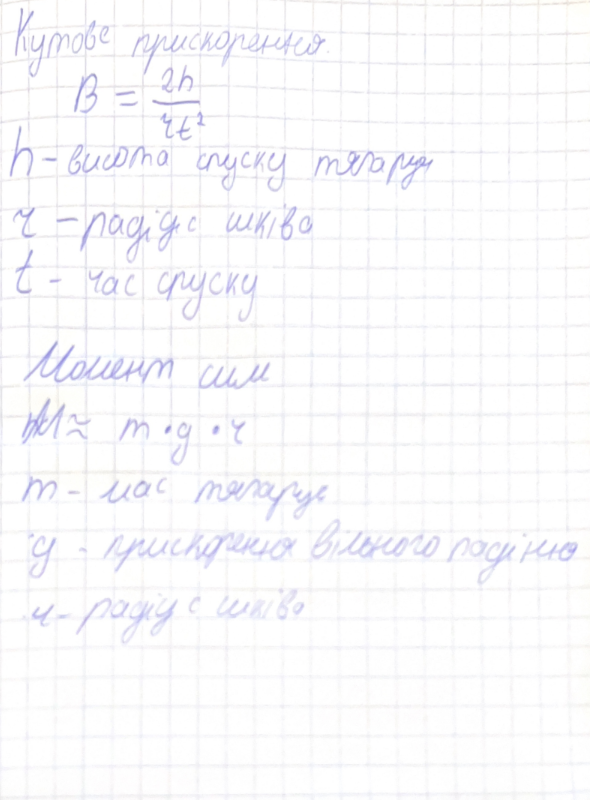 Кутове прискорення.
B = 2h / rt²
h – висота спуску тягарця
r – радіус шківа
t – час спуску
Момент сили
M ≈ m · g · r
m – мас тягарця
g – прискорення вільного падіння
r – радіус шківа